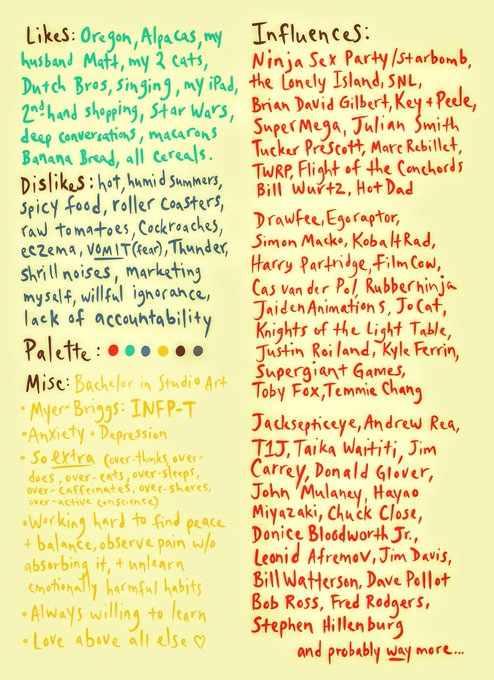 Likes: Oregon, Alpacas, my
husband Matt, my 2 cats,
Dutch Bros, singing, my iPad,
2nd-hand shopping, Star Wars,
deep conversations, macarons
Banana Bread, all cereals.
Dislikes: hot, humid summers,
spicy food, roller coasters,
raw tomatoes, Cockroaches,
eczema, VOMIT (fear), Thunder,
shrill noises, marketing
myself, willful ignorance,
lack of accountability
Palette:
Misc: Bachelor in Studio Art
• Myer-Briggs: INFP-T
• Anxiety + Depression
• So extra (over-thinks, over-
does, over-eats, over-sleeps,
over-caffeinates, over-shares,
over-active conscience)
• Working hard to find peace
+ balance, observe pain w/o
absorbing it, + unlearn
emotionally harmful habits
• Always willing to learn
• Love above all else ♡
Influences:
Ninja Sex Party/Starbomb,
the Lonely Island, SNL,
Brian David Gilbert, Key + Peele,
SuperMega, Julian Smith
Tucker Prescott, Marc Rebillet,
TWRP, Flight of the Conchords
Bill Wurtz, Hot Dad
Drawfee, Egoraptor,
Simon Macko, KobaltRad,
Harry Partridge, FilmCow,
Cas van der Pol, Rubberninja
JaidenAnimations, JoCat,
Knights of the Light Table,
Justin Roiland, Kyle Ferrin,
Supergiant Games,
Toby Fox, Temmie Chang
Jacksepticeye, Andrew Rea,
T1J, Taika Waititi, Jim
Carrey, Donald Glover,
John Mulaney, Hayao
Miyazaki, Chuck Close,
Donice Bloodworth Jr.,
Leonid Afremov, Jim Davis,
Bill Watterson, Dave Pollot
Bob Ross, Fred Rodgers,
Stephen Hillenburg
and probably way more...